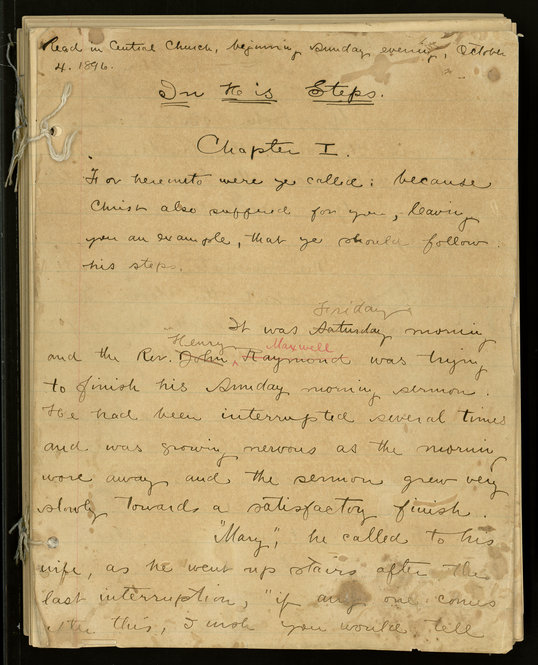 Read in Central Church, beginning Sunday evening, October
4. 1896.
In His Steps.
Chapter I.
For hereunto were ye called: because
Christ also suffered for you, leaving
you an example, that ye should follow
his steps.
Friday
It was Saturday morning
Henry Maxwell
and the Rev. John Raymond was trying
to finish his Sunday morning sermon.
He had been interrupted several times
and was growing nervous as the morning
wore away and the sermon grew very
slowly towards a satisfactory finish.
"Mary," he called to his
wife, as he went up stairs after the
last interruption, "if any one comes
after this, I wish you would tell